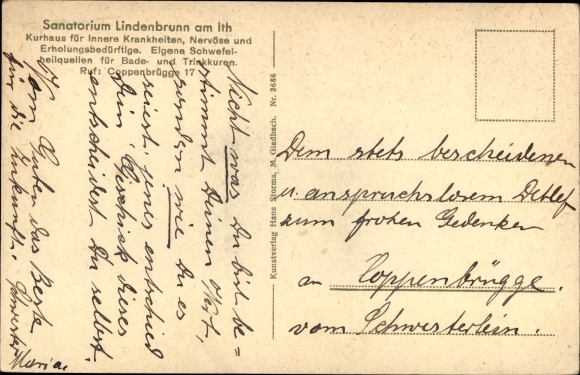 Sanatorium Lindenbrunn am Ith
Kurhaus für innere Krankheiten, Nervöse und
Erholungsbedürftige. Eigene Schwefel-
heilquellen für Bade- und Trinkkuren.
Ruf: Coppenbrügge 17
Nicht was Du bist be=
stimmt Deinen Wert,
sondern wie Du es
seiest, jenes entschied
Dein Geschick, dieses
entscheidest Du selbst.
Guten das Beste
für die Zukunft. Schwester
Maria
Kunstverlag Hans Storms, M.Gladbach. Nr. 3686
Dem stets bescheidenen
u. anspruchslosem Detlef
zum frohen Gedenken
an Coppenbrügge.
vom Schwesterlein.